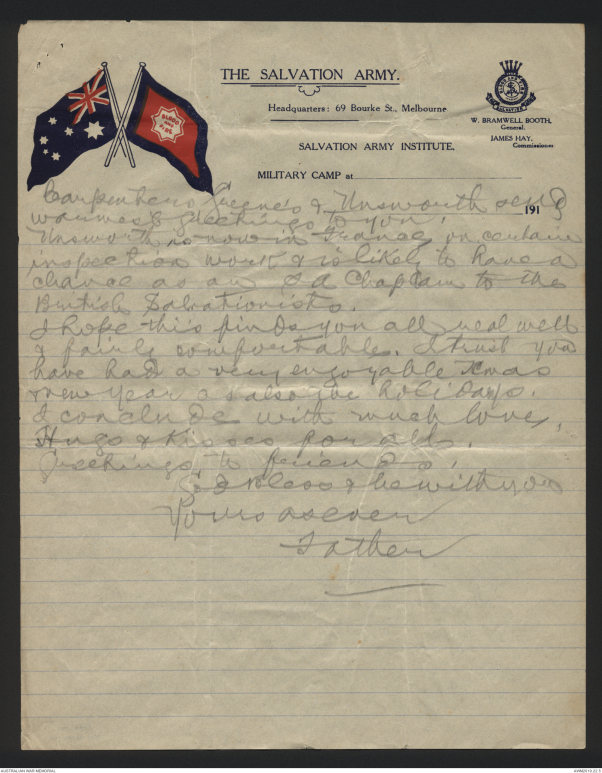 THE SALVATION ARMY.
Headquarters: 69 Bourke St., Melbourne
SALVATION ARMY INSTITUTE.
MILITARY CAMP at
191
BLOOD AND FIRE
W. BRAMWELL BOOTH,
General.
JAMES HAY,
Commissioner
Carpenters, Greene's & Unsworth send
warmest greetings to you.
Unsworth is now in France on certain
inspection work & is likely to have a
chance as an S A Chaplain to the
British Salvationists.
I hope this finds you all real well
& fairly comfortable. I trust you
have had a very enjoyable Xmas
& New Year as also the holidays.
I conclude with much love,
Hugs & Kisses for all.
Greetings to friends.
God bless & be with you
Yours as ever
Father
AUSTRALIAN WAR MEMORIAL